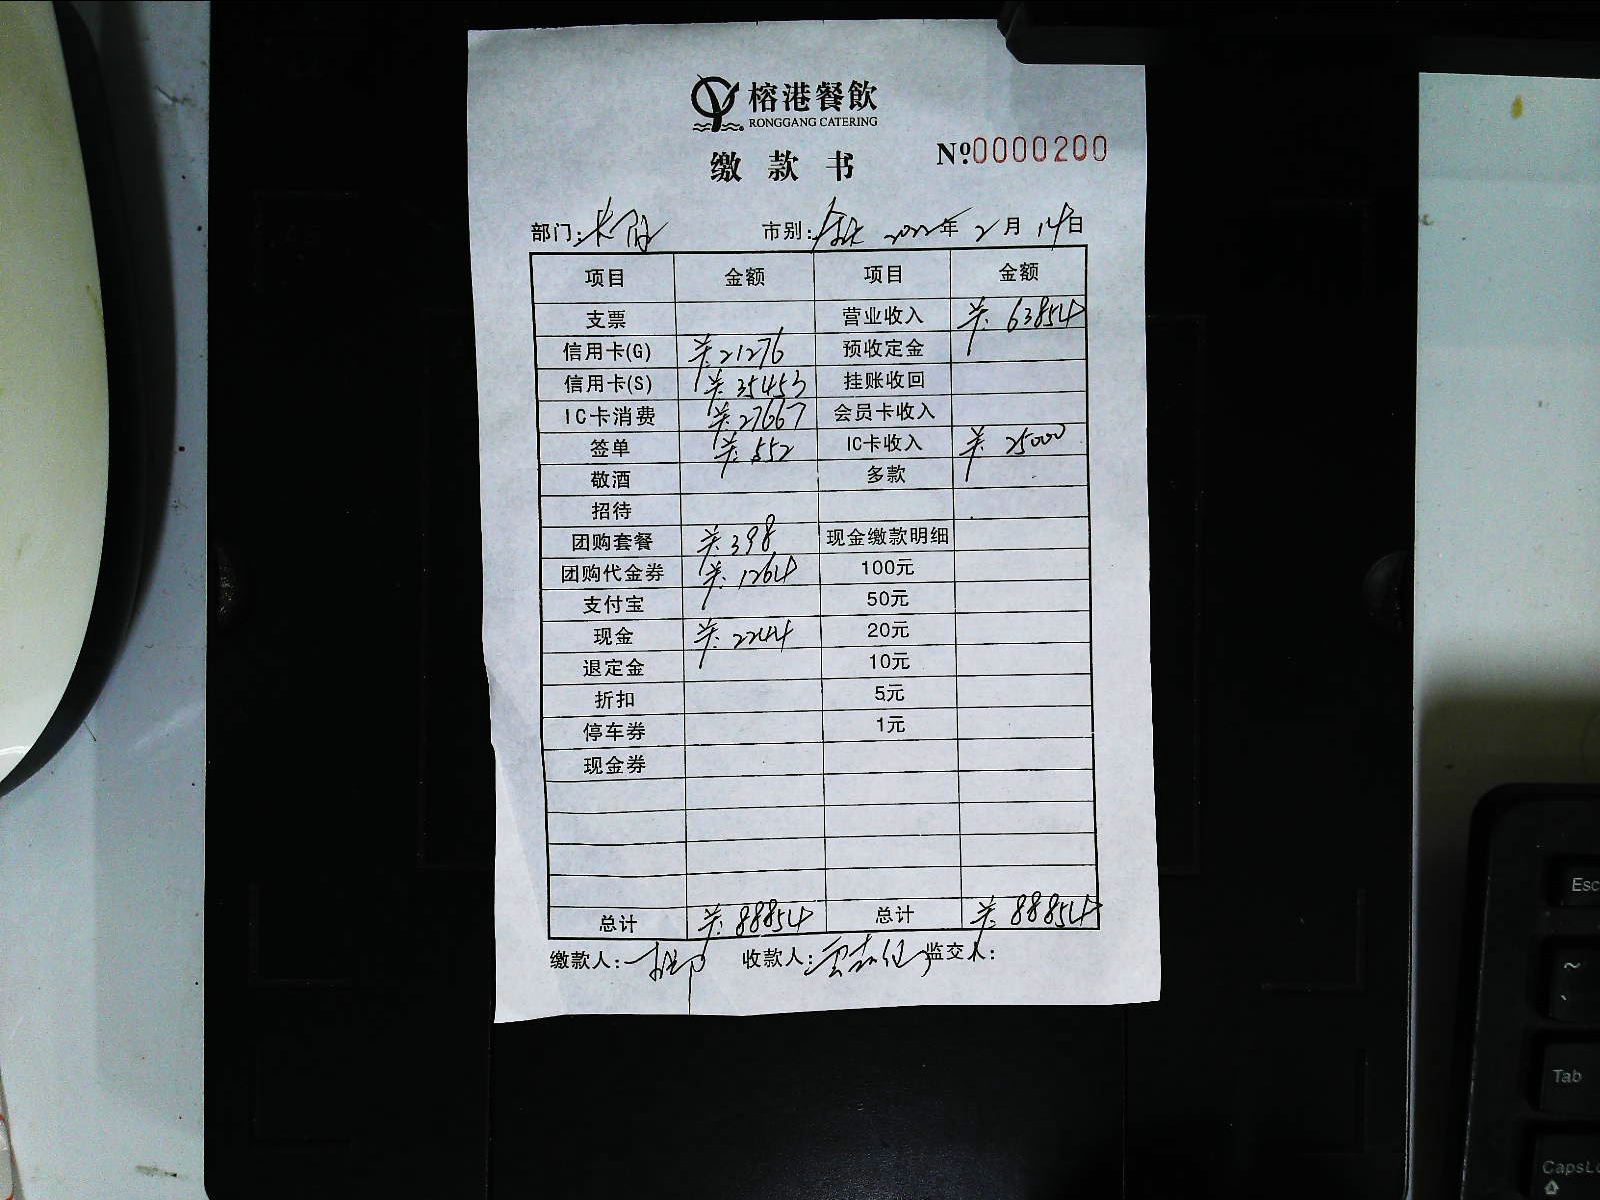 榕港餐飲
RONGGANG CATERING
缴款书 Nº0000200
部门: 市别: 2022年 2月 14日
项目 金额 项目 金额
支票 营业收入 ¥63854
信用卡(G) ¥21276 预收定金
信用卡(S) ¥35453 挂账收回
IC卡消费 ¥27667 会员卡收入
签单 ¥552 IC卡收入 ¥25000
敬酒 多款
招待
团购套餐 ¥398 现金缴款明细
团购代金券 ¥1264 100元
支付宝 50元
现金 ¥2244 20元
退定金 10元
折扣 5元
停车券 1元
现金券
总计 ¥88854 总计 ¥88854
缴款人: 收款人: 监交人:
Esc
~
、
Tab
CapsLo